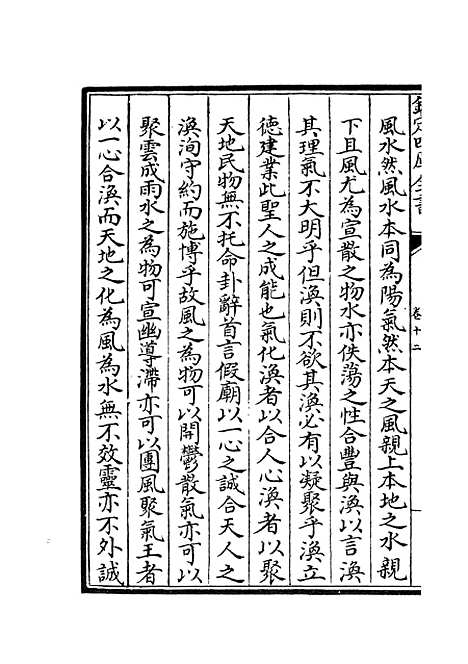 欽定四庫全書
卷十二
風水然風水本同為陽氣然本天之風親上本地之水親
下且風尤為宣散之物水亦佚蕩之性合豐與渙以言渙
其理氣不大明乎但渙則不欲其渙必有以凝聚乎渙立
德建業此聖人之成能也氣化渙者以合人心渙者以聚
天地民物無不托命卦辭首言假廟以一心之誠合天人之
渙洵守約而施博乎故風之為物可以開鬱散氣亦可以
聚雲成雨水之為物可宣幽導滯亦可以團風聚氣王者
以一心合渙而天地之化為風為水無不效靈亦不外誠